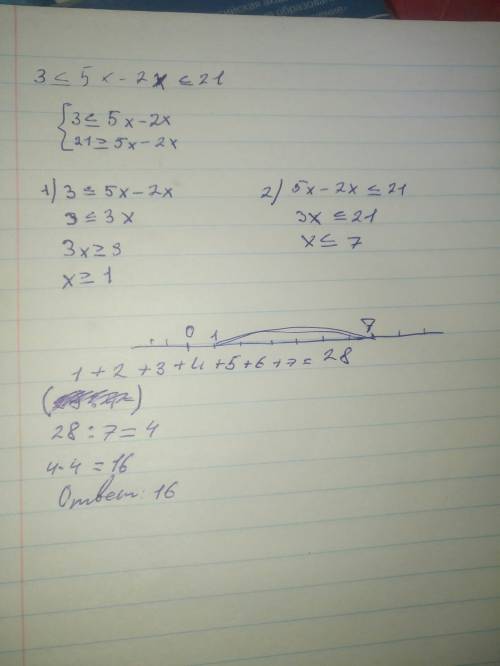 ическая ака
образова
3 ≤ 5x - 2x ≤ 21
{3 ≤ 5x - 2x
21 ≥ 5x - 2x
1) 3 ≤ 5x - 2x
3 ≤ 3x
3x ≥ 3
x ≥ 1
2) 5x - 2x ≤ 21
3x ≤ 21
x ≤ 7
0 1 7
1 + 2 + 3 + 4 + 5 + 6 + 7 = 28
28 : 7 = 4
4·4 = 16
Ответ: 16